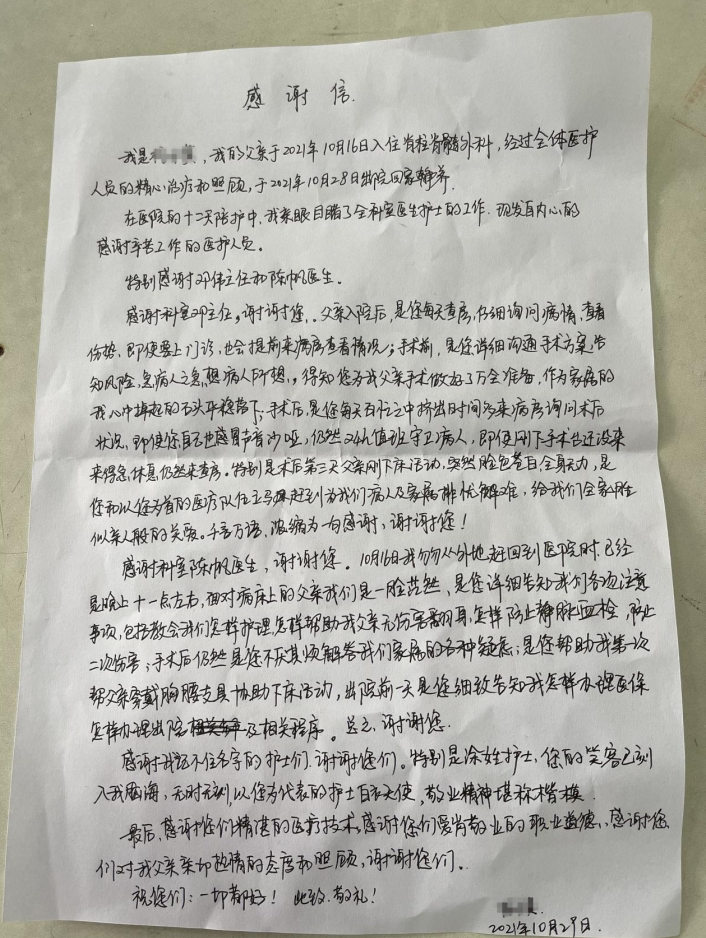 感谢信.
我是，我的父亲于2021年10月16日入住脊柱脊髓外科，经过全体医护
人员的精心治疗和照顾，于2021年10月28日出院回家静养.
在医院的十二天陪护中，我亲眼目睹了全科室医生护士的工作.现发自内心的
感谢辛苦工作的医护人员。
特别感谢邓伟主任和陈帆医生.
感谢科室邓主任，谢谢您，父亲入院后，是您每天查房，仔细询问病情，查看
伤势，即使要上门诊，也会提前来病房查看情况；手术前，是您详细沟通手术方案，告
知风险，急病人之急，想病人所想，得知您为我父亲手术做好了万全准备，作为家属的
我心中悬起的石头平稳落下；手术后，是您每天百忙之中挤出时间来病房询问术后
状况，即使您自己也感冒声音沙哑，仍然24h值班守卫病人，即使刚下手术台还没来
来得急休息仍然来查房。特别是术后第三天父亲刚下床活动，突然脸色苍白全身无力，是
您和以您为首的医疗队伍立马赶到为我们病人及家属排忧解难，给我们全家胜
似亲人般的关爱。千言万语，浓缩为一句感谢，谢谢您！
感谢科室陈帆医生，谢谢您。10月16日我匆匆从外地赶回到医院时已经
是晚上十一点左右，面对病床上的父亲我们是一脸茫然，是您详细告知我们各项注意
事项，包括教会我们怎样护理，怎样帮助我父亲无伤害翻身，怎样防止静脉血栓，防止
二次伤害；手术后仍然是您不厌其烦解答我们家属的各种疑惑；是您帮助我第一次
帮父亲穿戴胸腰支具协助下床活动，出院前一天是您细致告知我怎样办理医保
怎样办理出院及相关程序。总之，谢谢您.
感谢我记不住名字的护士们.谢谢您们。特别是涂姓护士，您的笑容已刻
入我脑海，无时无刻，以您为代表的护士白衣天使，敬业精神堪称楷模.
最后，感谢您们精湛的医疗技术，感谢您们爱岗敬业的职业道德，感谢您
们对我父亲亲切热情的态度和照顾，谢谢您们.
祝您们：一切都好！此致.敬礼！
2021年10月29日.